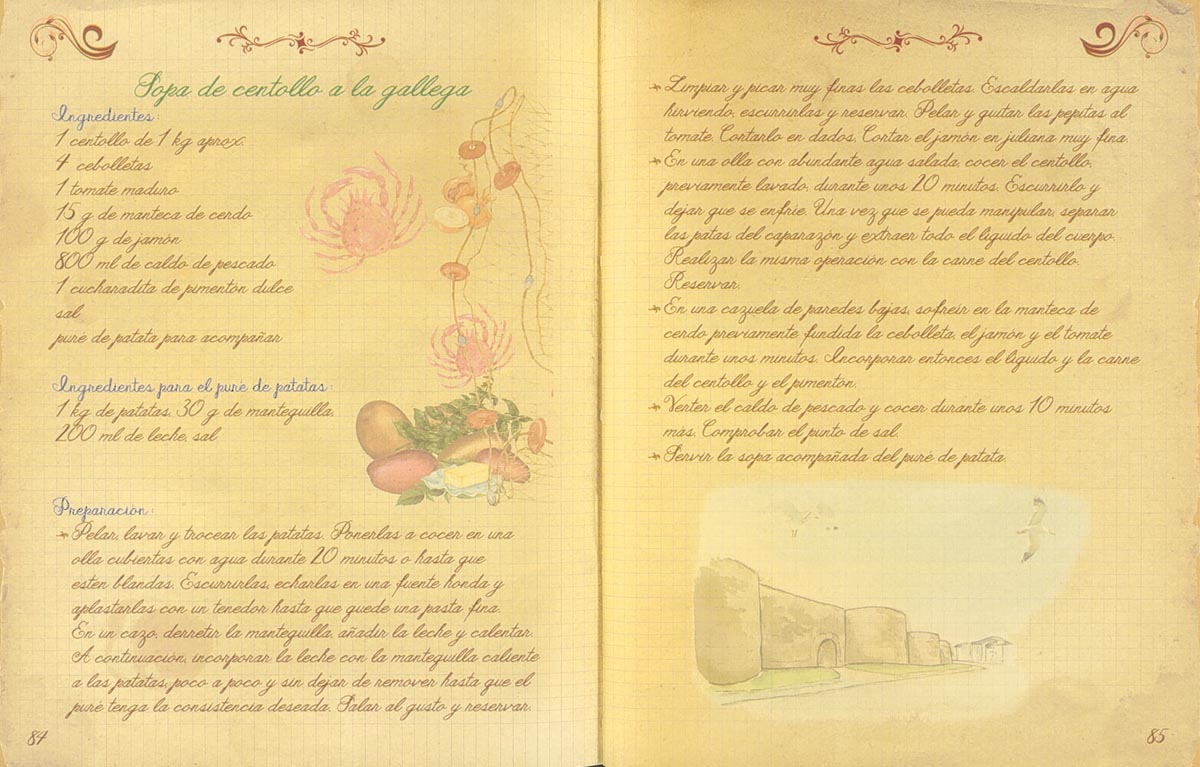 Sopa de centollo a la gallega
Ingredientes:
1 centollo de 1 kg aprox.
4 cebolletas
1 tomate maduro
15 g de manteca de cerdo
100 g de jamón
800 ml de caldo de pescado
1 cucharadita de pimentón dulce
sal
puré de patata para acompañar
Ingredientes para el puré de patatas:
1 kg de patatas, 30 g de mantequilla,
200 ml de leche, sal
Preparación:
Pelar, lavar y trocear las patatas. Ponerlas a cocer en una
olla cubiertas con agua durante 20 minutos o hasta que
esten blandas. Escurrirlas, echarlas en una fuente honda y
aplastarlas con un tenedor hasta que quede una pasta fina.
En un cazo, derretir la mantequilla, añadir la leche y calentar.
A continuación, incorporar la leche con la mantequilla caliente
a las patatas, poco a poco y sin dejar de remover hasta que el
puré tenga la consistencia deseada. Salar al gusto y reservar.
84
Limpiar y picar muy finas las cebolletas. Escaldarlas en agua
hirviendo, escurrirlas y reservar. Pelar y quitar las pepitas al
tomate. Cortarlo en dados. Cortar el jamón en juliana muy fina.
En una olla con abundante agua salada, cocer el centollo,
previamente lavado, durante unos 20 minutos. Escurrirlo y
dejar que se enfríe. Una vez que se pueda manipular, separar
las patas del caparazón y extraer todo el líquido del cuerpo.
Realizar la misma operación con la carne del centollo.
Reservar.
En una cazuela de paredes bajas, sofreír en la manteca de
cerdo previamente fundida la cebolleta, el jamón y el tomate
durante unos minutos. Incorporar entonces el líquido y la carne
del centollo y el pimentón.
Verter el caldo de pescado y cocer durante unos 10 minutos
más. Comprobar el punto de sal.
Servir la sopa acompañada del puré de patata.
85